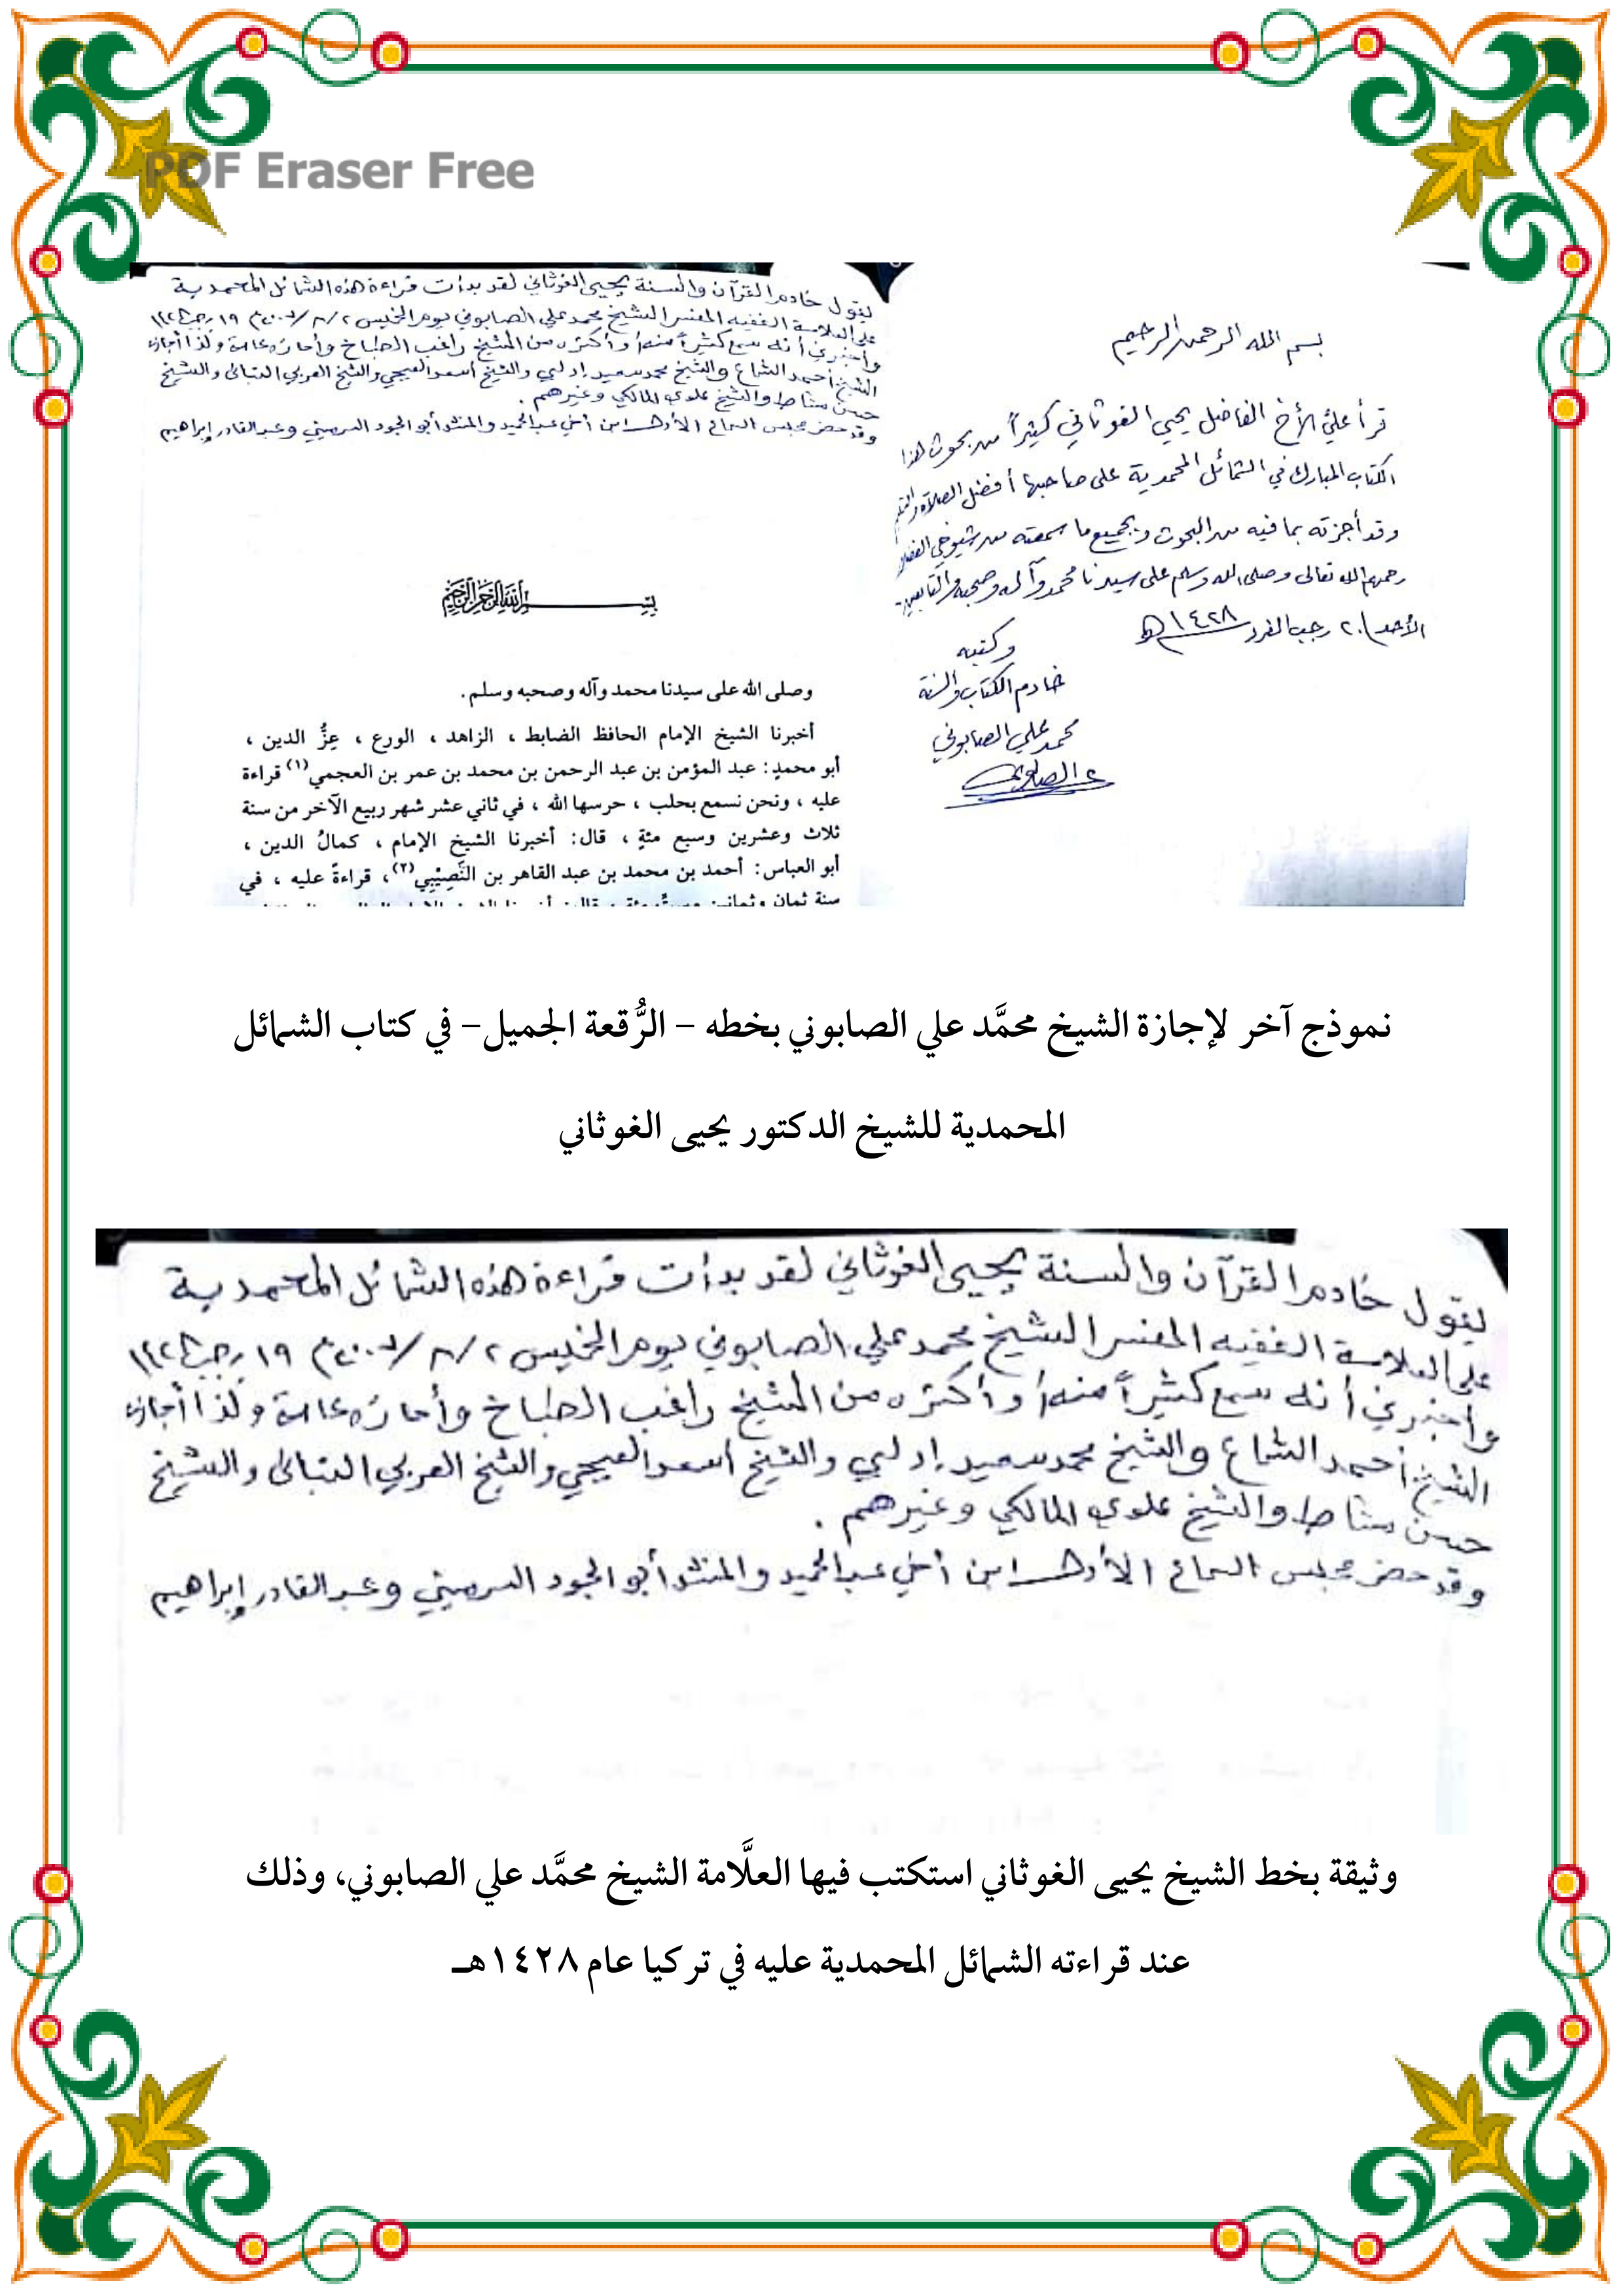 PDF Eraser Free
بسم الله الرحمن الرحيم
قرأ عليَّ الأخ الفاضل يحيى الغوثاني كثيراً من بحوث هذا
الكتاب المبارك في الشمائل المحمدية على صاحبها أفضل الصلاة والتسليم
وقد أجزته بما فيه من البحوث وبجميع ما سمعته من شيوخي الفضلاء
رحمهم الله تعالى وصلى الله وسلم على سيدنا محمد وآله وصحبه والتابعين
الأحد ٢٠ رجب الفرد ١٤٢٨ هـ
وكتبه
خادم الكتاب والسنة
محمد علي الصابوني
يقول خادم القرآن والسنة يحيى الغوثاني لقد بدأت قراءة هذه الشمائل المحمدية
على العلامة الفقيه المفسر الشيخ محمد علي الصابوني يوم الخميس ٢/٨/٢٠٠٧م ١٩ رجب
وأخبرني أنه سمع كثيراً منها وأكثره من الشيخ راغب الطباخ وأجازه عامة وكذا أجازه
الشيخ أحمد الشماع والشيخ محمد سعيد إدلبي والشيخ أسعد العبجي والشيخ العربي التباني والشيخ
حسن مشاط والشيخ علوي المالكي وغيرهم .
وقد حضر مجلس السماع ابن أخي عبد الحميد والمنشد أبو الجود السرميني وعبد القادر إبراهيم
بسم الله الرحمن الرحيم
وصلى الله على سيدنا محمد وآله وصحبه وسلم.
أخبرنا الشيخ الإمام الحافظ الضابط ، الزاهد ، الورع ، عِزُّ الدين ،
أبو محمدٍ: عبد المؤمن بن عبد الرحمن بن محمد بن عمر بن العجمي(١) قراءة
عليه ، ونحن نسمع بحلب ، حرسها الله ، في ثاني عشر شهر ربيع الآخر من سنة
ثلاث وعشرين وسبع مئةٍ ، قال: أخبرنا الشيخ الإمام ، كمالُ الدين ،
أبو العباس: أحمد بن محمد بن عبد القاهر بن النَّصِيْبِي(٢)، قراءةً عليه ، في
سنة ثمان وثمانين وست مئة
نموذج آخر لإجازة الشيخ محمَّد علي الصابوني بخطه – الرُّقعة الجميل– في كتاب الشمائل
المحمدية للشيخ الدكتور يحيى الغوثاني
يقول خادم القرآن والسنة يحيى الغوثاني لقد بدأت قراءة هذه الشمائل المحمدية
على العلامة الفقيه المفسر الشيخ محمد علي الصابوني يوم الخميس ٢/٨/٢٠٠٧م ١٩ رجب
وأخبرني أنه سمع كثيراً منها وأكثره من الشيخ راغب الطباخ وأجازه عامة وكذا أجازه
الشيخ أحمد الشماع والشيخ محمد سعيد إدلبي والشيخ أسعد العبجي والشيخ العربي التباني والشيخ
حسن مشاط والشيخ علوي المالكي وغيرهم .
وقد حضر مجلس السماع ابن أخي عبد الحميد والمنشد أبو الجود السرميني وعبد القادر إبراهيم
وثيقة بخط الشيخ يحيى الغوثاني استكتب فيها العلَّامة الشيخ محمَّد علي الصابوني، وذلك
عند قراءته الشمائل المحمدية عليه في تركيا عام ١٤٢٨هـ